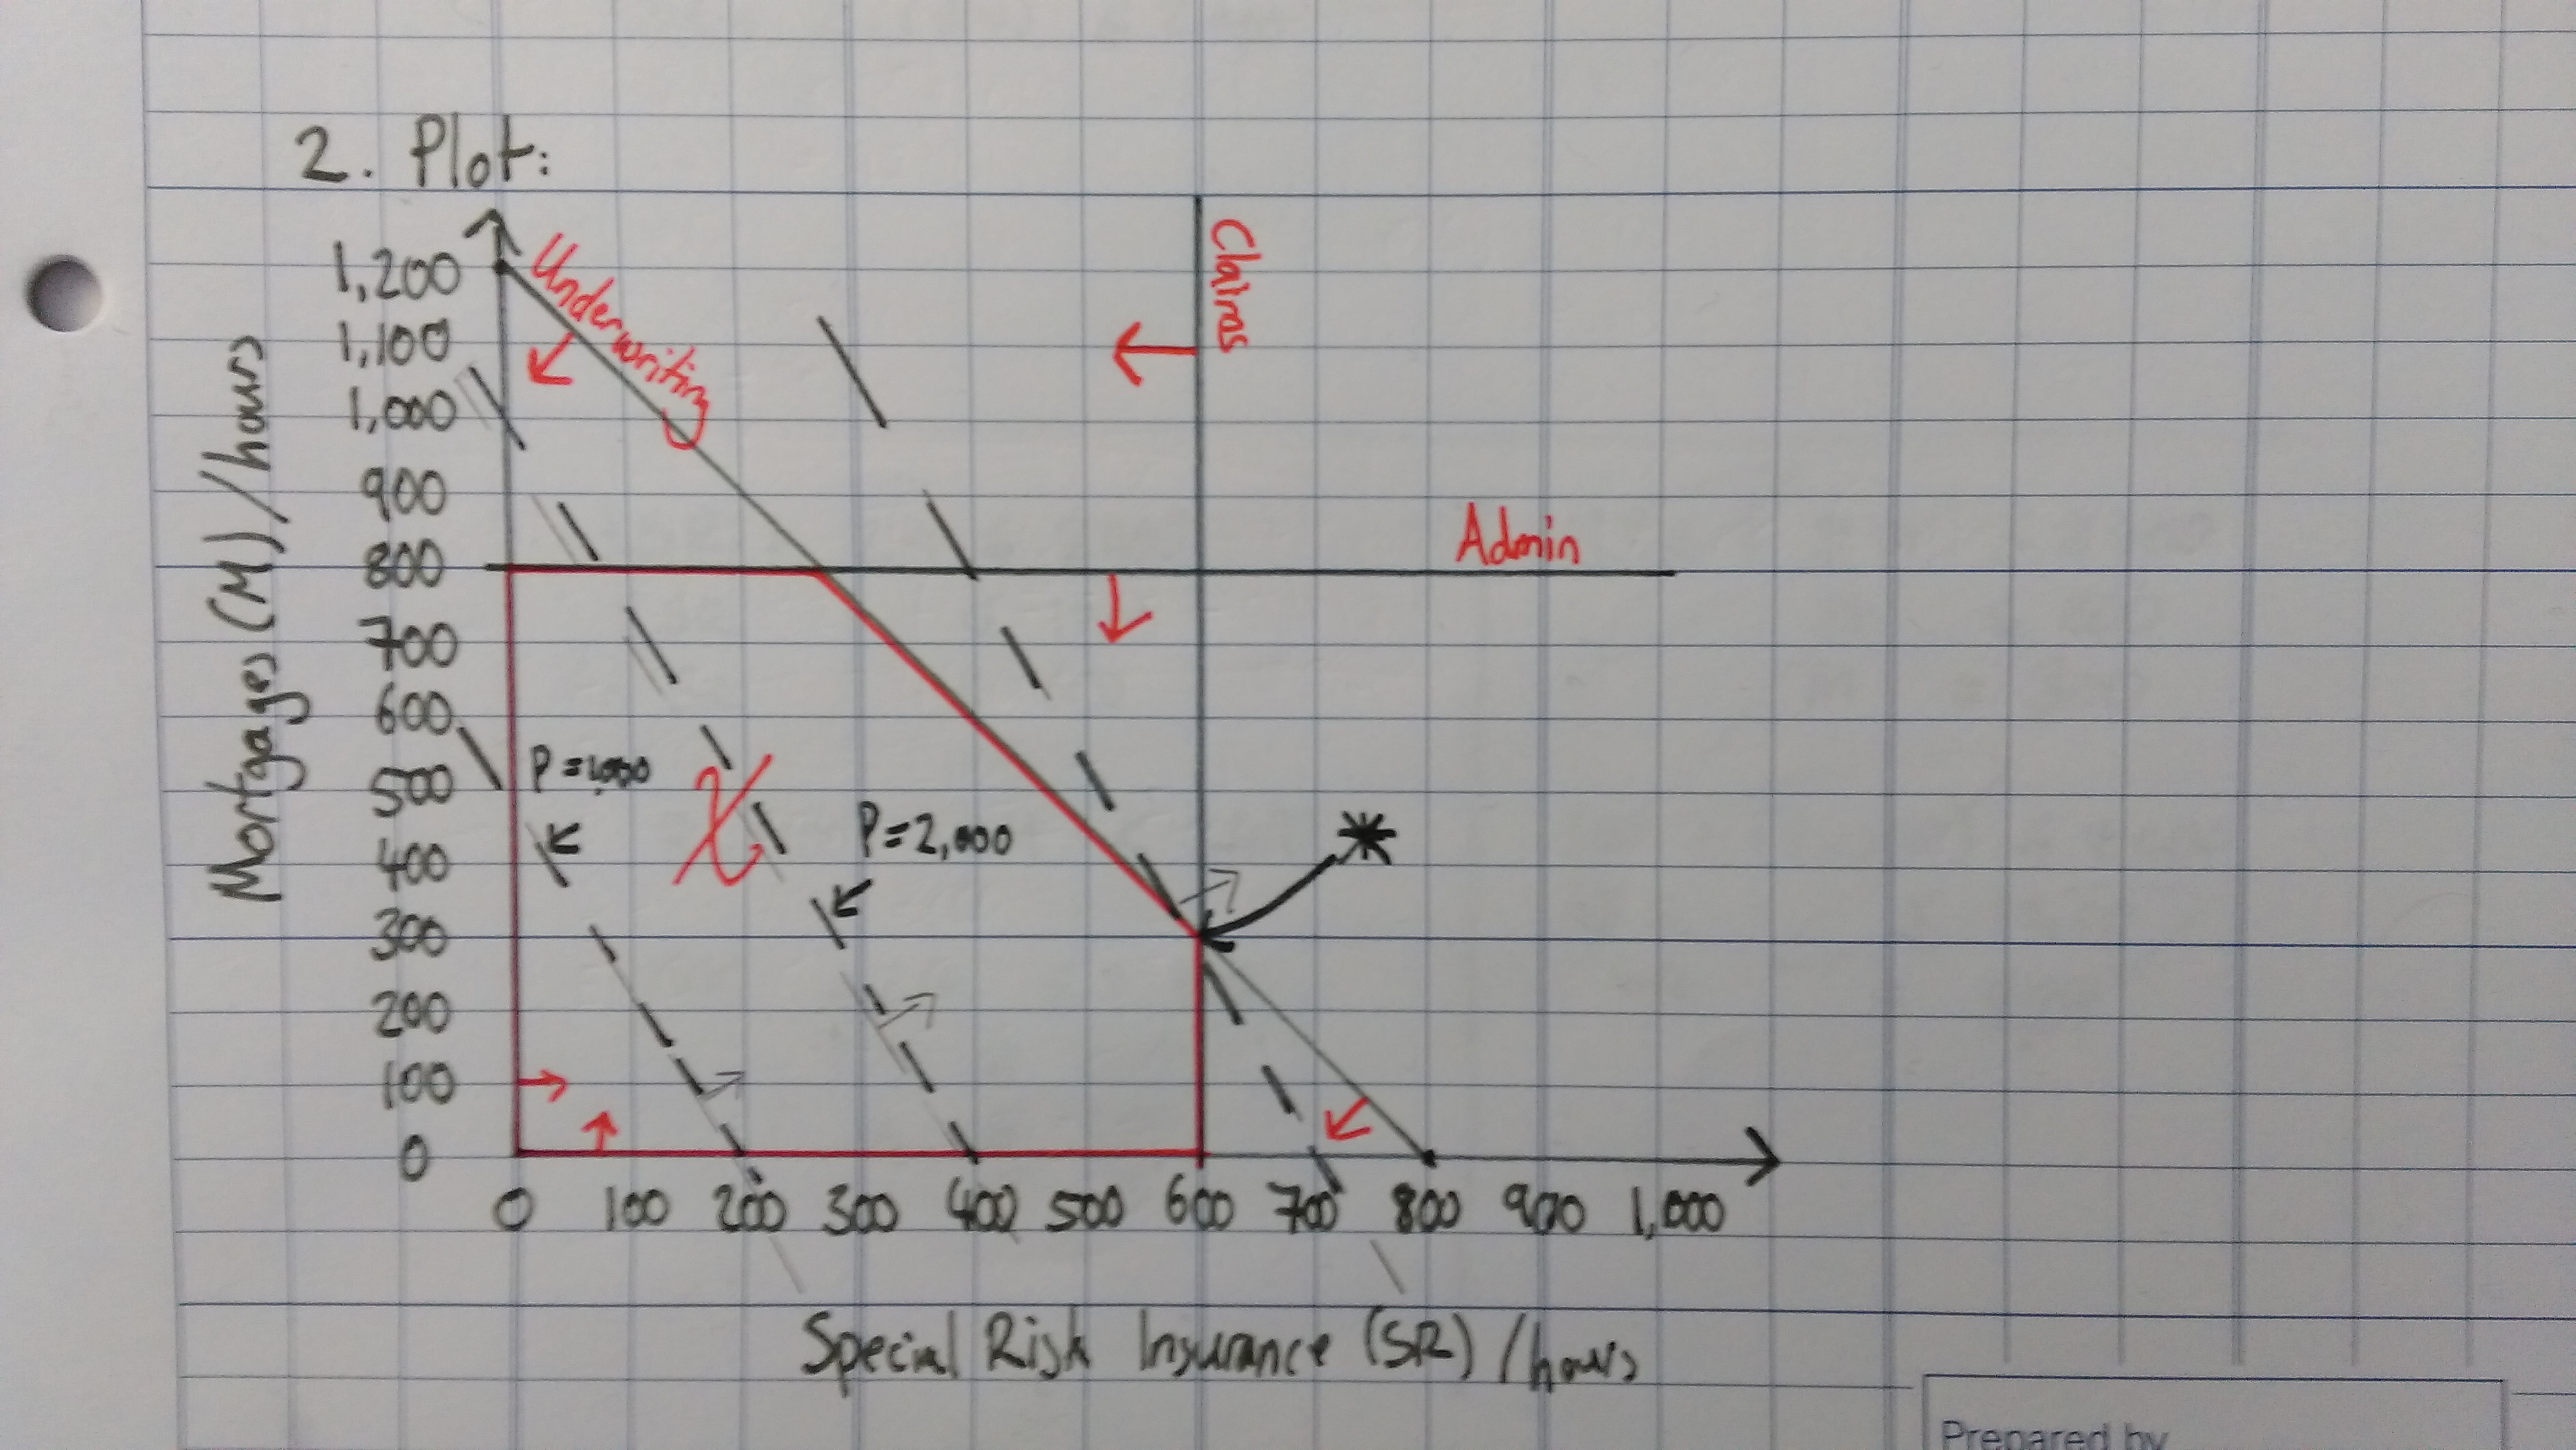 2. Plot:
Mortgages (M) /hours
1,200
1,100
1,000
900
800
700
600
500
400
300
200
100
0
Underwriting
Claims
Admin
P = 1,000
P = 2,000
0 100 200 300 400 500 600 700 800 900 1,000
Special Risk Insurance (SR) /hours
Prepared by